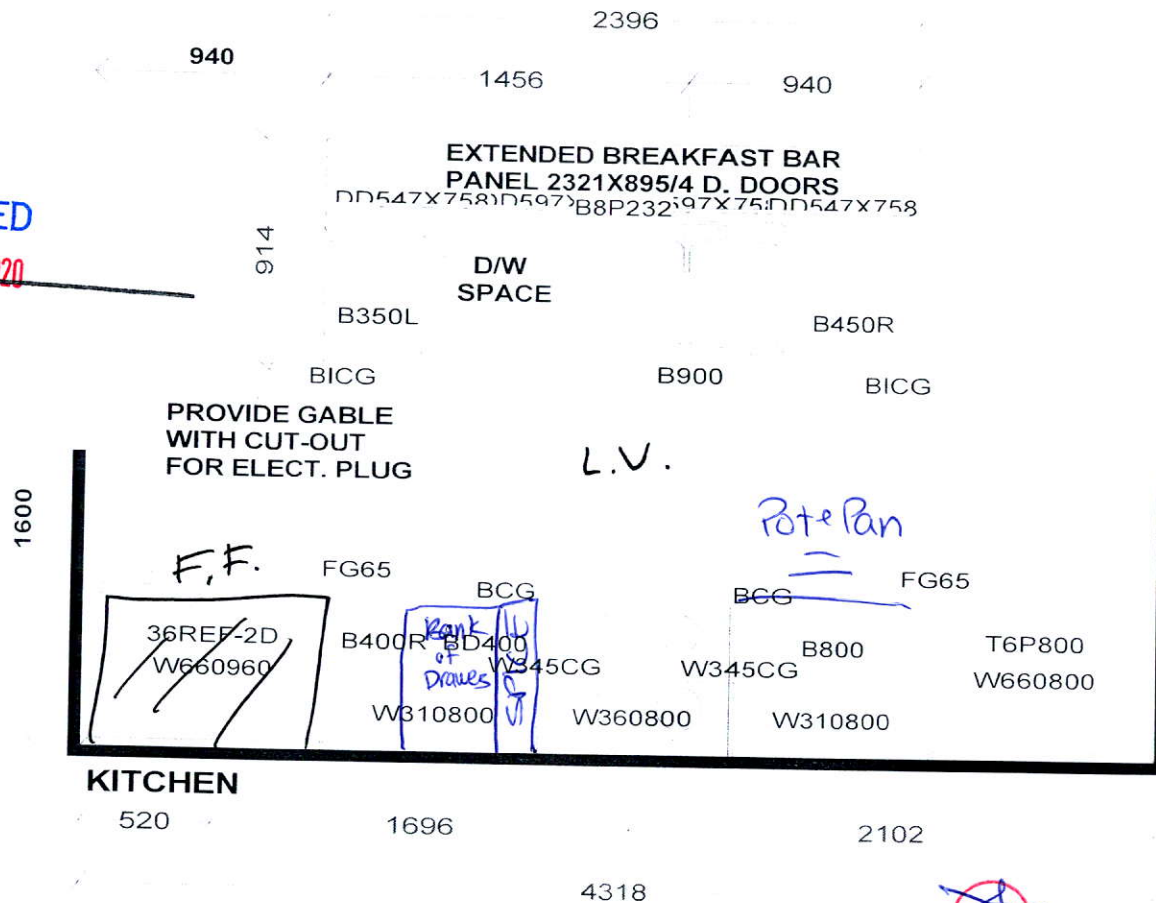 2396
940
1456
940
EXTENDED BREAKFAST BAR
PANEL 2321X895/4 D. DOORS
DD547X758 D597X B8P232 597X75 DD547X758
ED
20
914
D/W
SPACE
B350L
B450R
BICG
B900
BICG
PROVIDE GABLE
WITH CUT-OUT
FOR ELECT. PLUG
L.V.
1600
Pot e Pan
F.F.
FG65
BCG
BCG
FG65
36REF-2D
W660960
B400R
Bank
of
Drawes
BD400
SPICE
W345CG
W345CG
B800
T6P800
W660800
W310800
W360800
W310800
KITCHEN
520
1696
2102
4318